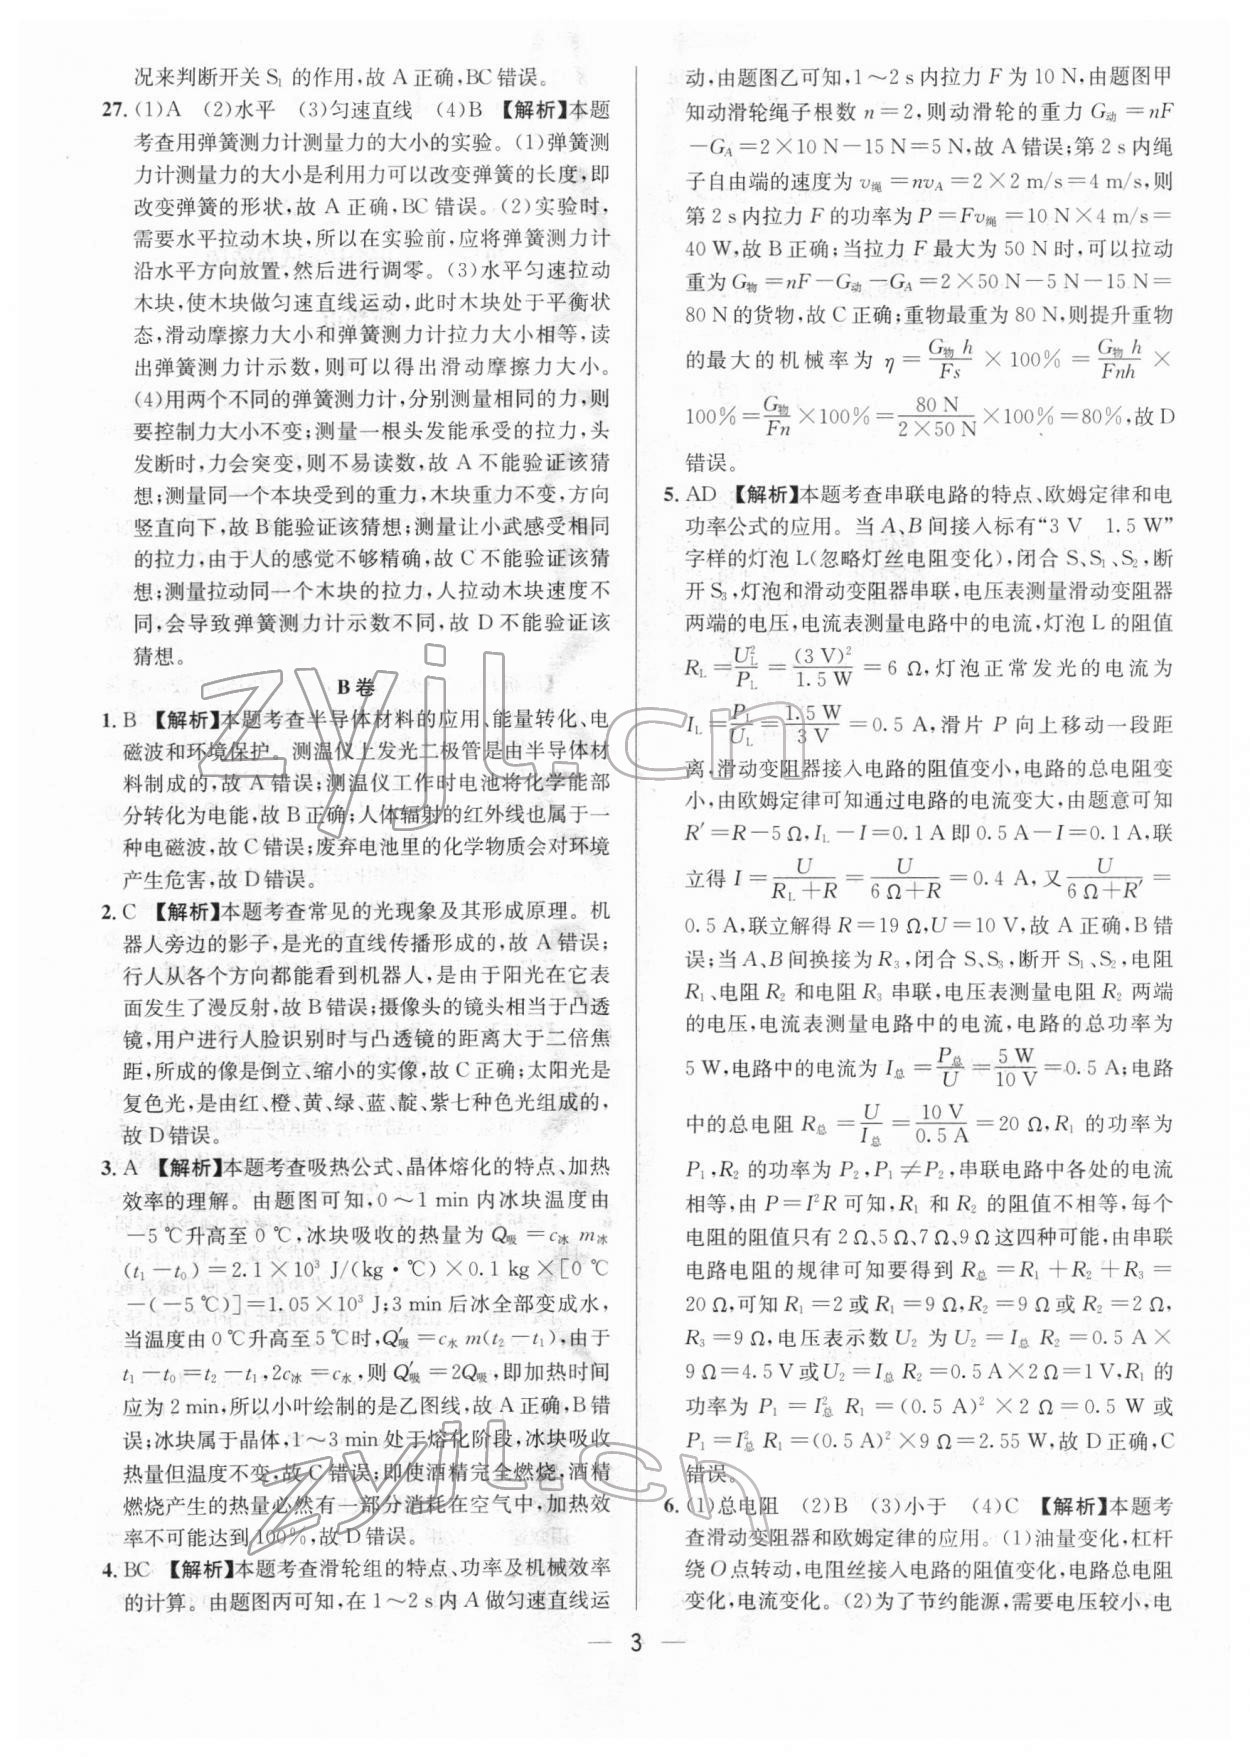 况来判断开关 S₁ 的作用,故 A 正确,BC 错误。
27. (1)A (2)水平 (3)匀速直线 (4)B 【解析】本题
考查用弹簧测力计测量力的大小的实验。(1)弹簧测
力计测量力的大小是利用力可以改变弹簧的长度,即
改变弹簧的形状,故 A 正确,BC 错误。(2)实验时,
需要水平拉动木块,所以在实验前,应将弹簧测力计
沿水平方向放置,然后进行调零。(3)水平匀速拉动
木块,使木块做匀速直线运动,此时木块处于平衡状
态,滑动摩擦力大小和弹簧测力计拉力大小相等,读
出弹簧测力计示数,则可以得出滑动摩擦力大小。
(4)用两个不同的弹簧测力计,分别测量相同的力,则
要控制力大小不变;测量一根头发能承受的拉力,头
发断时,力会突变,则不易读数,故 A 不能验证该猜
想;测量同一个本块受到的重力,木块重力不变,方向
竖直向下,故 B 能验证该猜想;测量让小武感受相同
的拉力,由于人的感觉不够精确,故 C 不能验证该猜
想;测量拉动同一个木块的拉力,人拉动木块速度不
同,会导致弹簧测力计示数不同,故 D 不能验证该
猜想。
B 卷
1. B 【解析】本题考查半导体材料的应用、能量转化、电
磁波和环境保护。测温仪上发光二极管是由半导体材
料制成的,故 A 错误;测温仪工作时电池将化学能部
分转化为电能,故 B 正确;人体辐射的红外线也属于一
种电磁波,故 C 错误;废弃电池里的化学物质会对环境
产生危害,故 D 错误。
2. C 【解析】本题考查常见的光现象及其形成原理。机
器人旁边的影子,是光的直线传播形成的,故 A 错误;
行人从各个方向都能看到机器人,是由于阳光在它表
面发生了漫反射,故 B 错误;摄像头的镜头相当于凸透
镜,用户进行人脸识别时与凸透镜的距离大于二倍焦
距,所成的像是倒立、缩小的实像,故 C 正确;太阳光是
复色光,是由红、橙、黄、绿、蓝、靛、紫七种色光组成的,
故 D 错误。
3. A 【解析】本题考查吸热公式、晶体熔化的特点、加热
效率的理解。由题图可知,0～1 min 内冰块温度由
−5 ℃升高至 0 ℃,冰块吸收的热量为 Q吸＝c冰 m冰
(t₁−t₀)＝2.1×10³ J/(kg·℃)×0.1 kg×[0 ℃
−(−5 ℃)]＝1.05×10³ J;3 min 后冰全部变成水,
当温度由 0 ℃升高至 5 ℃时,Q′吸＝c水 m(t₂−t₁),由于
t₁−t₀＝t₂−t₁,2c冰＝c水,则 Q′吸＝2Q吸,即加热时间
应为 2 min,所以小叶绘制的是乙图线,故 A 正确,B 错
误;冰块属于晶体,1～3 min 处于熔化阶段,冰块吸收
热量但温度不变,故 C 错误;即使酒精完全燃烧,酒精
燃烧产生的热量必然有一部分消耗在空气中,加热效
率不可能达到 100%,故 D 错误。
4. BC 【解析】本题考查滑轮组的特点、功率及机械效率
的计算。由题图丙可知,在 1～2 s 内 A 做匀速直线运
动,由题图乙可知,1～2 s 内拉力 F 为 10 N,由题图甲
知动滑轮绳子根数 n＝2,则动滑轮的重力 G动＝nF
−G_A＝2×10 N−15 N＝5 N,故 A 错误;第 2 s 内绳
子自由端的速度为 v绳＝nv_A＝2×2 m/s＝4 m/s,则
第 2 s 内拉力 F 的功率为 P＝Fv绳＝10 N×4 m/s＝
40 W,故 B 正确;当拉力 F 最大为 50 N 时,可以拉动
重为 G物＝nF−G动−G_A＝2×50 N−5 N−15 N＝
80 N 的货物,故 C 正确;重物最重为 80 N,则提升重物
的最大的机械率为 η＝G物 h/Fs×100%＝G物 h/Fnh×
100%＝G物/Fn×100%＝80 N/2×50 N×100%＝80%,故 D
错误。
5. AD 【解析】本题考查串联电路的特点、欧姆定律和电
功率公式的应用。当 A、B 间接入标有“3 V 1.5 W”
字样的灯泡 L(忽略灯丝电阻变化),闭合 S、S₁、S₂,断
开 S₃,灯泡和滑动变阻器串联,电压表测量滑动变阻器
两端的电压,电流表测量电路中的电流,灯泡 L 的阻值
R_L＝U_L²/P_L＝(3 V)²/1.5 W＝6 Ω,灯泡正常发光的电流为
I_L＝P_L/U_L＝1.5 W/3 V＝0.5 A,滑片 P 向上移动一段距
离,滑动变阻器接入电路的阻值变小,电路的总电阻变
小,由欧姆定律可知通过电路的电流变大,由题意可知
R′＝R−5 Ω,I_L−I＝0.1 A 即 0.5 A−I＝0.1 A,联
立得 I＝U/R_L+R＝U/6 Ω+R＝0.4 A,又 U/6 Ω+R′＝
0.5 A,联立解得 R＝19 Ω,U＝10 V,故 A 正确,B 错
误;当 A、B 间换接为 R₃,闭合 S、S₃,断开 S₁、S₂,电阻
R₁、电阻 R₂ 和电阻 R₃ 串联,电压表测量电阻 R₂ 两端
的电压,电流表测量电路中的电流,电路的总功率为
5 W,电路中的电流为 I总＝P总/U＝5 W/10 V＝0.5 A;电路
中的总电阻 R总＝U/I总＝10 V/0.5 A＝20 Ω,R₁ 的功率为
P₁,R₂ 的功率为 P₂,P₁≠P₂,串联电路中各处的电流
相等,由 P＝I²R 可知,R₁ 和 R₂ 的阻值不相等,每个
电阻的阻值只有 2 Ω、5 Ω、7 Ω、9 Ω 这四种可能,由串联
电路电阻的规律可知要得到 R总＝R₁+R₂+R₃＝
20 Ω,可知 R₁＝2 或 R₁＝9 Ω,R₂＝9 Ω 或 R₂＝2 Ω,
R₃＝9 Ω,电压表示数 U₂ 为 U₂＝I总 R₂＝0.5 A×
9 Ω＝4.5 V 或 U₂＝I总 R₂＝0.5 A×2 Ω＝1 V,R₁ 的
功率为 P₁＝I总² R₁＝(0.5 A)²×2 Ω＝0.5 W 或
P₁＝I总² R₁＝(0.5 A)²×9 Ω＝2.55 W,故 D 正确,C
错误。
6. (1)总电阻 (2)B (3)小于 (4)C 【解析】本题考
查滑动变阻器和欧姆定律的应用。(1)油量变化,杠杆
绕 O 点转动,电阻丝接入电路的阻值变化,电路总电阻
变化,电流变化。(2)为了节约能源,需要电压较小,电
3
zyjl.cn
zyjl.cn